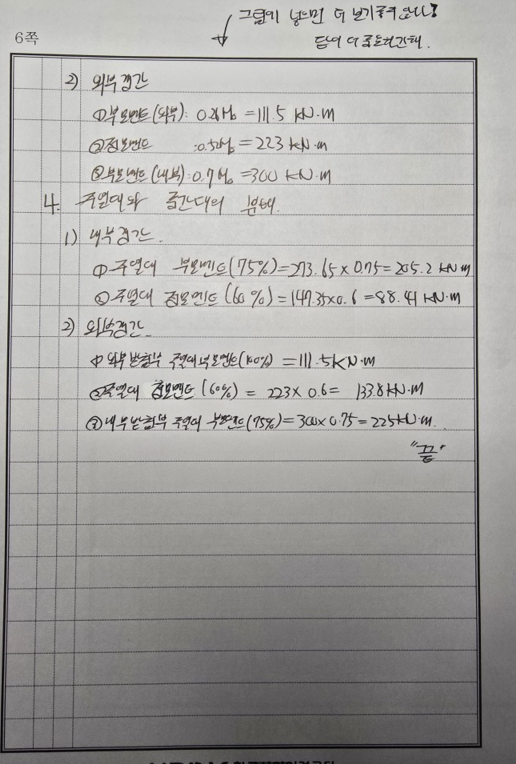 그림이 넣으면 더 보기 좋습니다!
답이 더
6쪽
2) 외부경간
① 부모멘트(외부): 0.26M₀ = 111.5 KN·m
② 정모멘트 : 0.52M₀ = 223 KN·m
③ 부모멘트(내부): 0.7M₀ = 300 KN·m
4. 주열대와 중간대의 분배.
1) 내부경간.
① 주열대 부모멘트(75%) = 273.65 x 0.75 = 205.2 KN·m
② 주열대 정모멘트(60%) = 147.35 x 0.6 = 88.41 KN·m
2) 외부경간.
① 외부받침부 주열대 부모멘트(100%) = 111.5 KN·m
② 주열대 정모멘트(60%) = 223 x 0.6 = 133.8 KN·m
③ 내부받침부 주열대 부모멘트(75%) = 300 x 0.75 = 225 KN·m.
"끝"